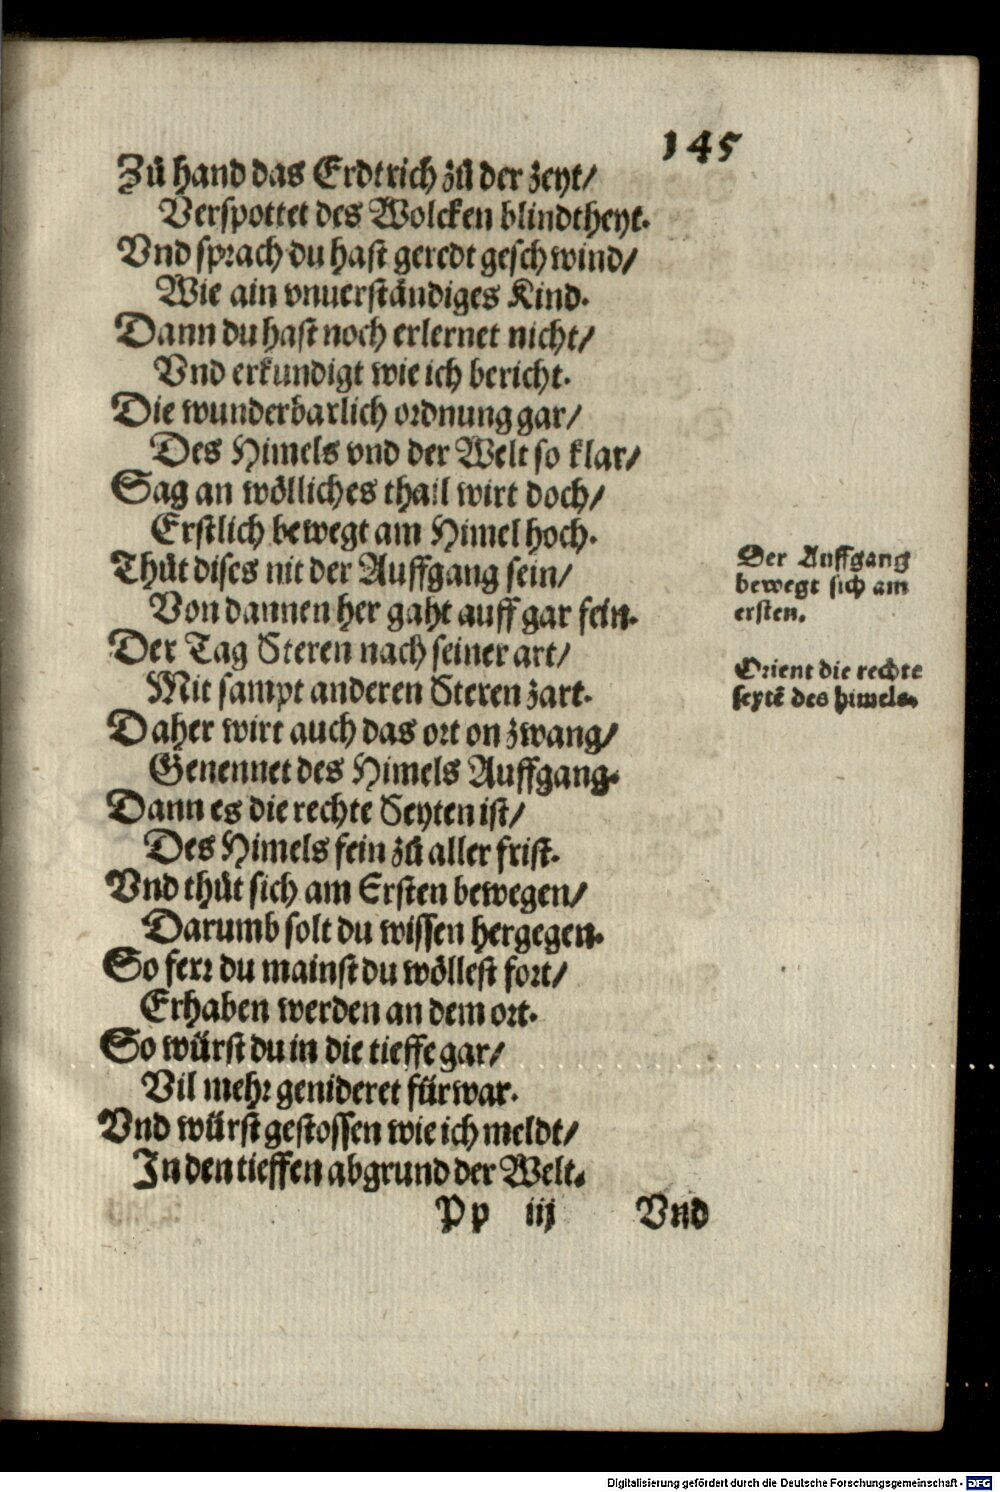 145
Zů hand das Erdtrich zů der zeyt/
Verspottet des Wolcken blindtheyt.
Vnd sprach du hast geredt geschwind/
Wie ain vnuerständiges Kind.
Dann du hast noch erlernet nicht/
Vnd erkundigt wie ich bericht.
Die wunderbarlich ordnung gar/
Des Himels vnd der Welt so klar/
Sag an wölliches thail wirt doch/
Erstlich bewegt am Himel hoch.
Thůt dises nit der Auffgang sein/
Von dannen her gaht auff gar fein.
Der Tag Steren nach seiner art/
Mit sampt anderen Steren zart.
Daher wirt auch das ort on zwang/
Genennet des Himels Auffgang.
Dann es die rechte Seyten ist/
Des Himels fein zů aller frist.
Vnd thůt sich am Ersten bewegen/
Darumb solt du wissen hergegen.
So ferr du mainst du wöllest fort/
Erhaben werden an dem ort.
So würst du in die tieffe gar/
Vil mehr genideret fürwar.
Vnd würst gestossen wie ich meldt/
In den tieffen abgrund der Welt.
Der Auffgang
bewegt sich am
ersten.
Orient die rechte
seytẽ des himels.
Pp iij Vnd
Digitalisierung gefördert durch die Deutsche Forschungsgemeinschaft - DFG